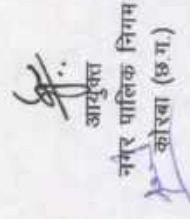 आयुक्त
नगर पालिक निगम
कोरबा (छ.ग.)